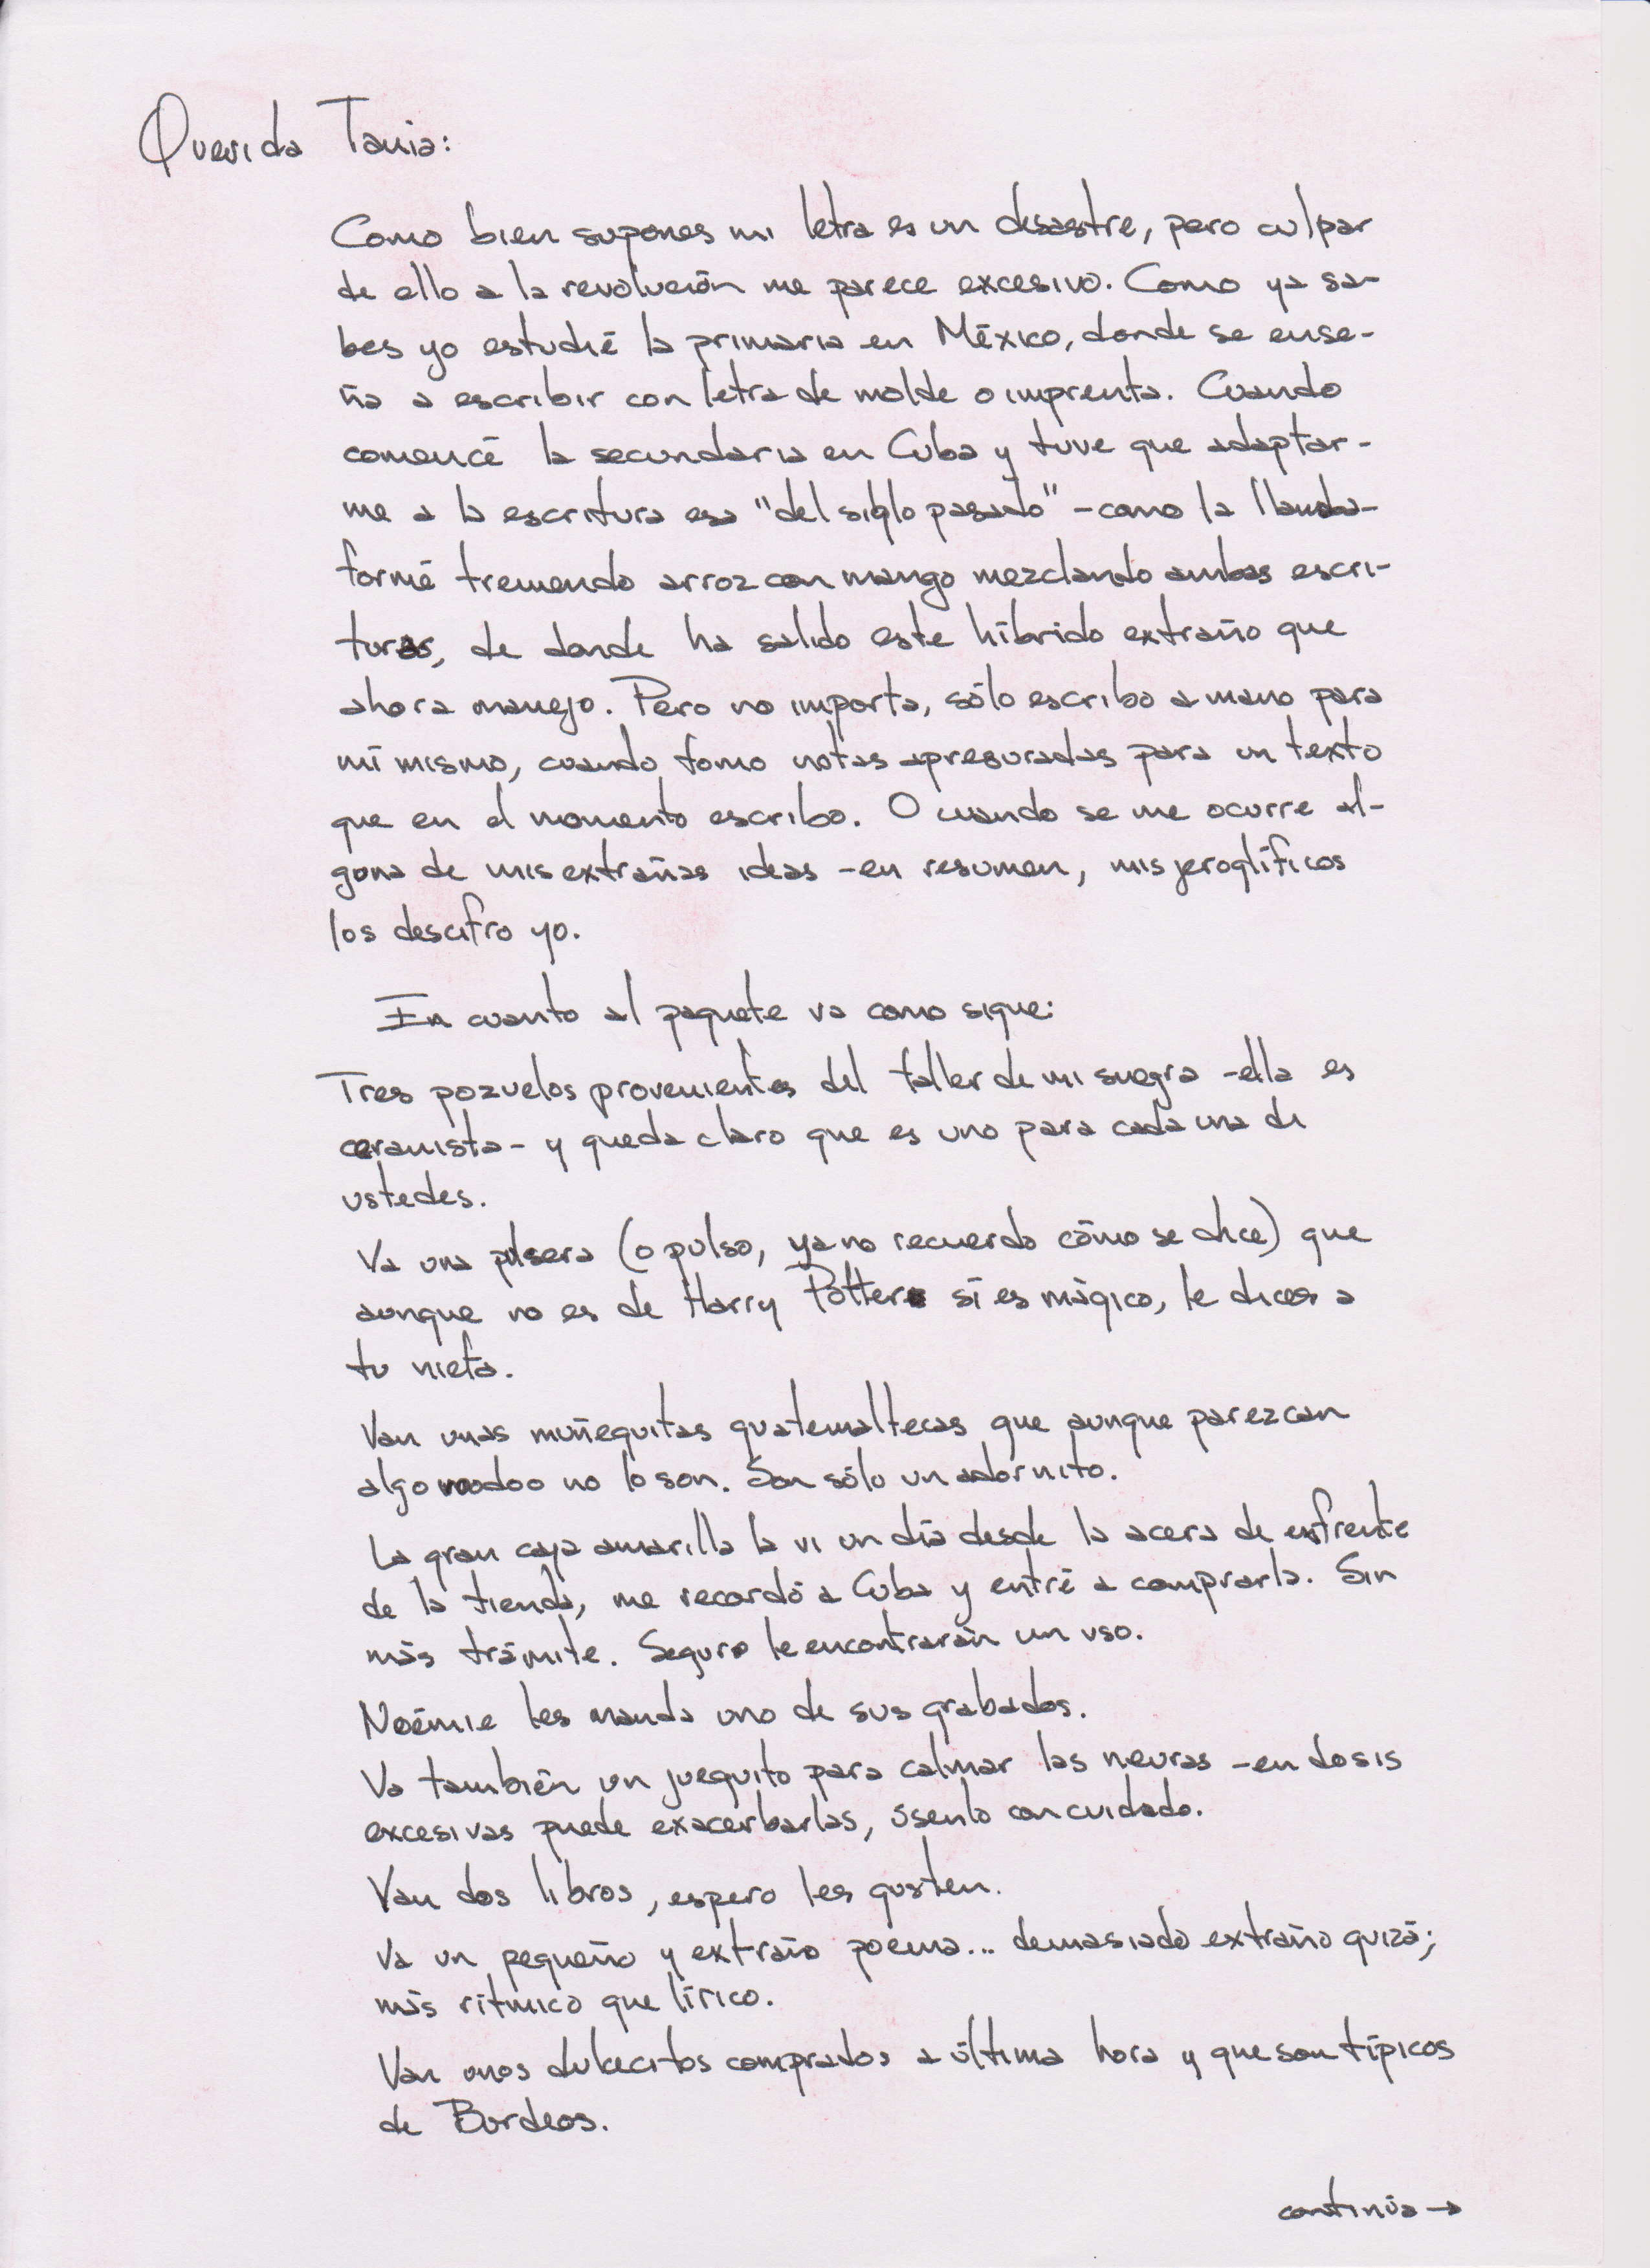 Querida Tania:
Como bien supones mi letra es un desastre, pero culpar
de ello a la revolución me parece excesivo. Como ya sa-
bes yo estudié la primaria en México, donde se ense-
ña a escribir con letra de molde o imprenta. Cuando
comencé la secundaria en Cuba y tuve que adaptar-
me a la escritura esa "del siglo pasado" -como la llamaba-
formé tremendo arroz con mango mezclando ambas escri-
turas, de donde ha salido este híbrido extraño que
ahora manejo. Pero no importa, sólo escribo a mano para
mí mismo, cuando tomo notas apresuradas para un texto
que en el momento escribo. O cuando se me ocurre al-
guna de mis extrañas ideas -en resumen, mis jeroglíficos
los descifro yo.
En cuanto al paquete va como sigue:
Tres pozuelos provenientes del taller de mi suegra -ella es
ceramista- y queda claro que es uno para cada una de
ustedes.
Va una pulsera (o pulso, ya no recuerdo cómo se dice) que
aunque no es de Harry Potter sí es mágico, le dices a
tu nieta.
Van unas muñequitas guatemaltecas que aunque parezcan
algo voodoo no lo son. Son sólo un adornito.
La gran caja amarilla la vi un día desde la acera de enfrente
de la tienda, me recordó a Cuba y entré a comprarla. Sin
más trámite. Seguro le encontrarán un uso.
Noémie les manda uno de sus grabados.
Va también un jueguito para calmar las neuras -en dosis
excesivas puede exacerbarlas, úsenlo con cuidado.
Van dos libros, espero les gusten.
Va un pequeño y extraño poema... demasiado extraño quizá;
más rítmico que lírico.
Van unos dulcecitos comprados a última hora y que son típicos
de Burdeos.
continúa →